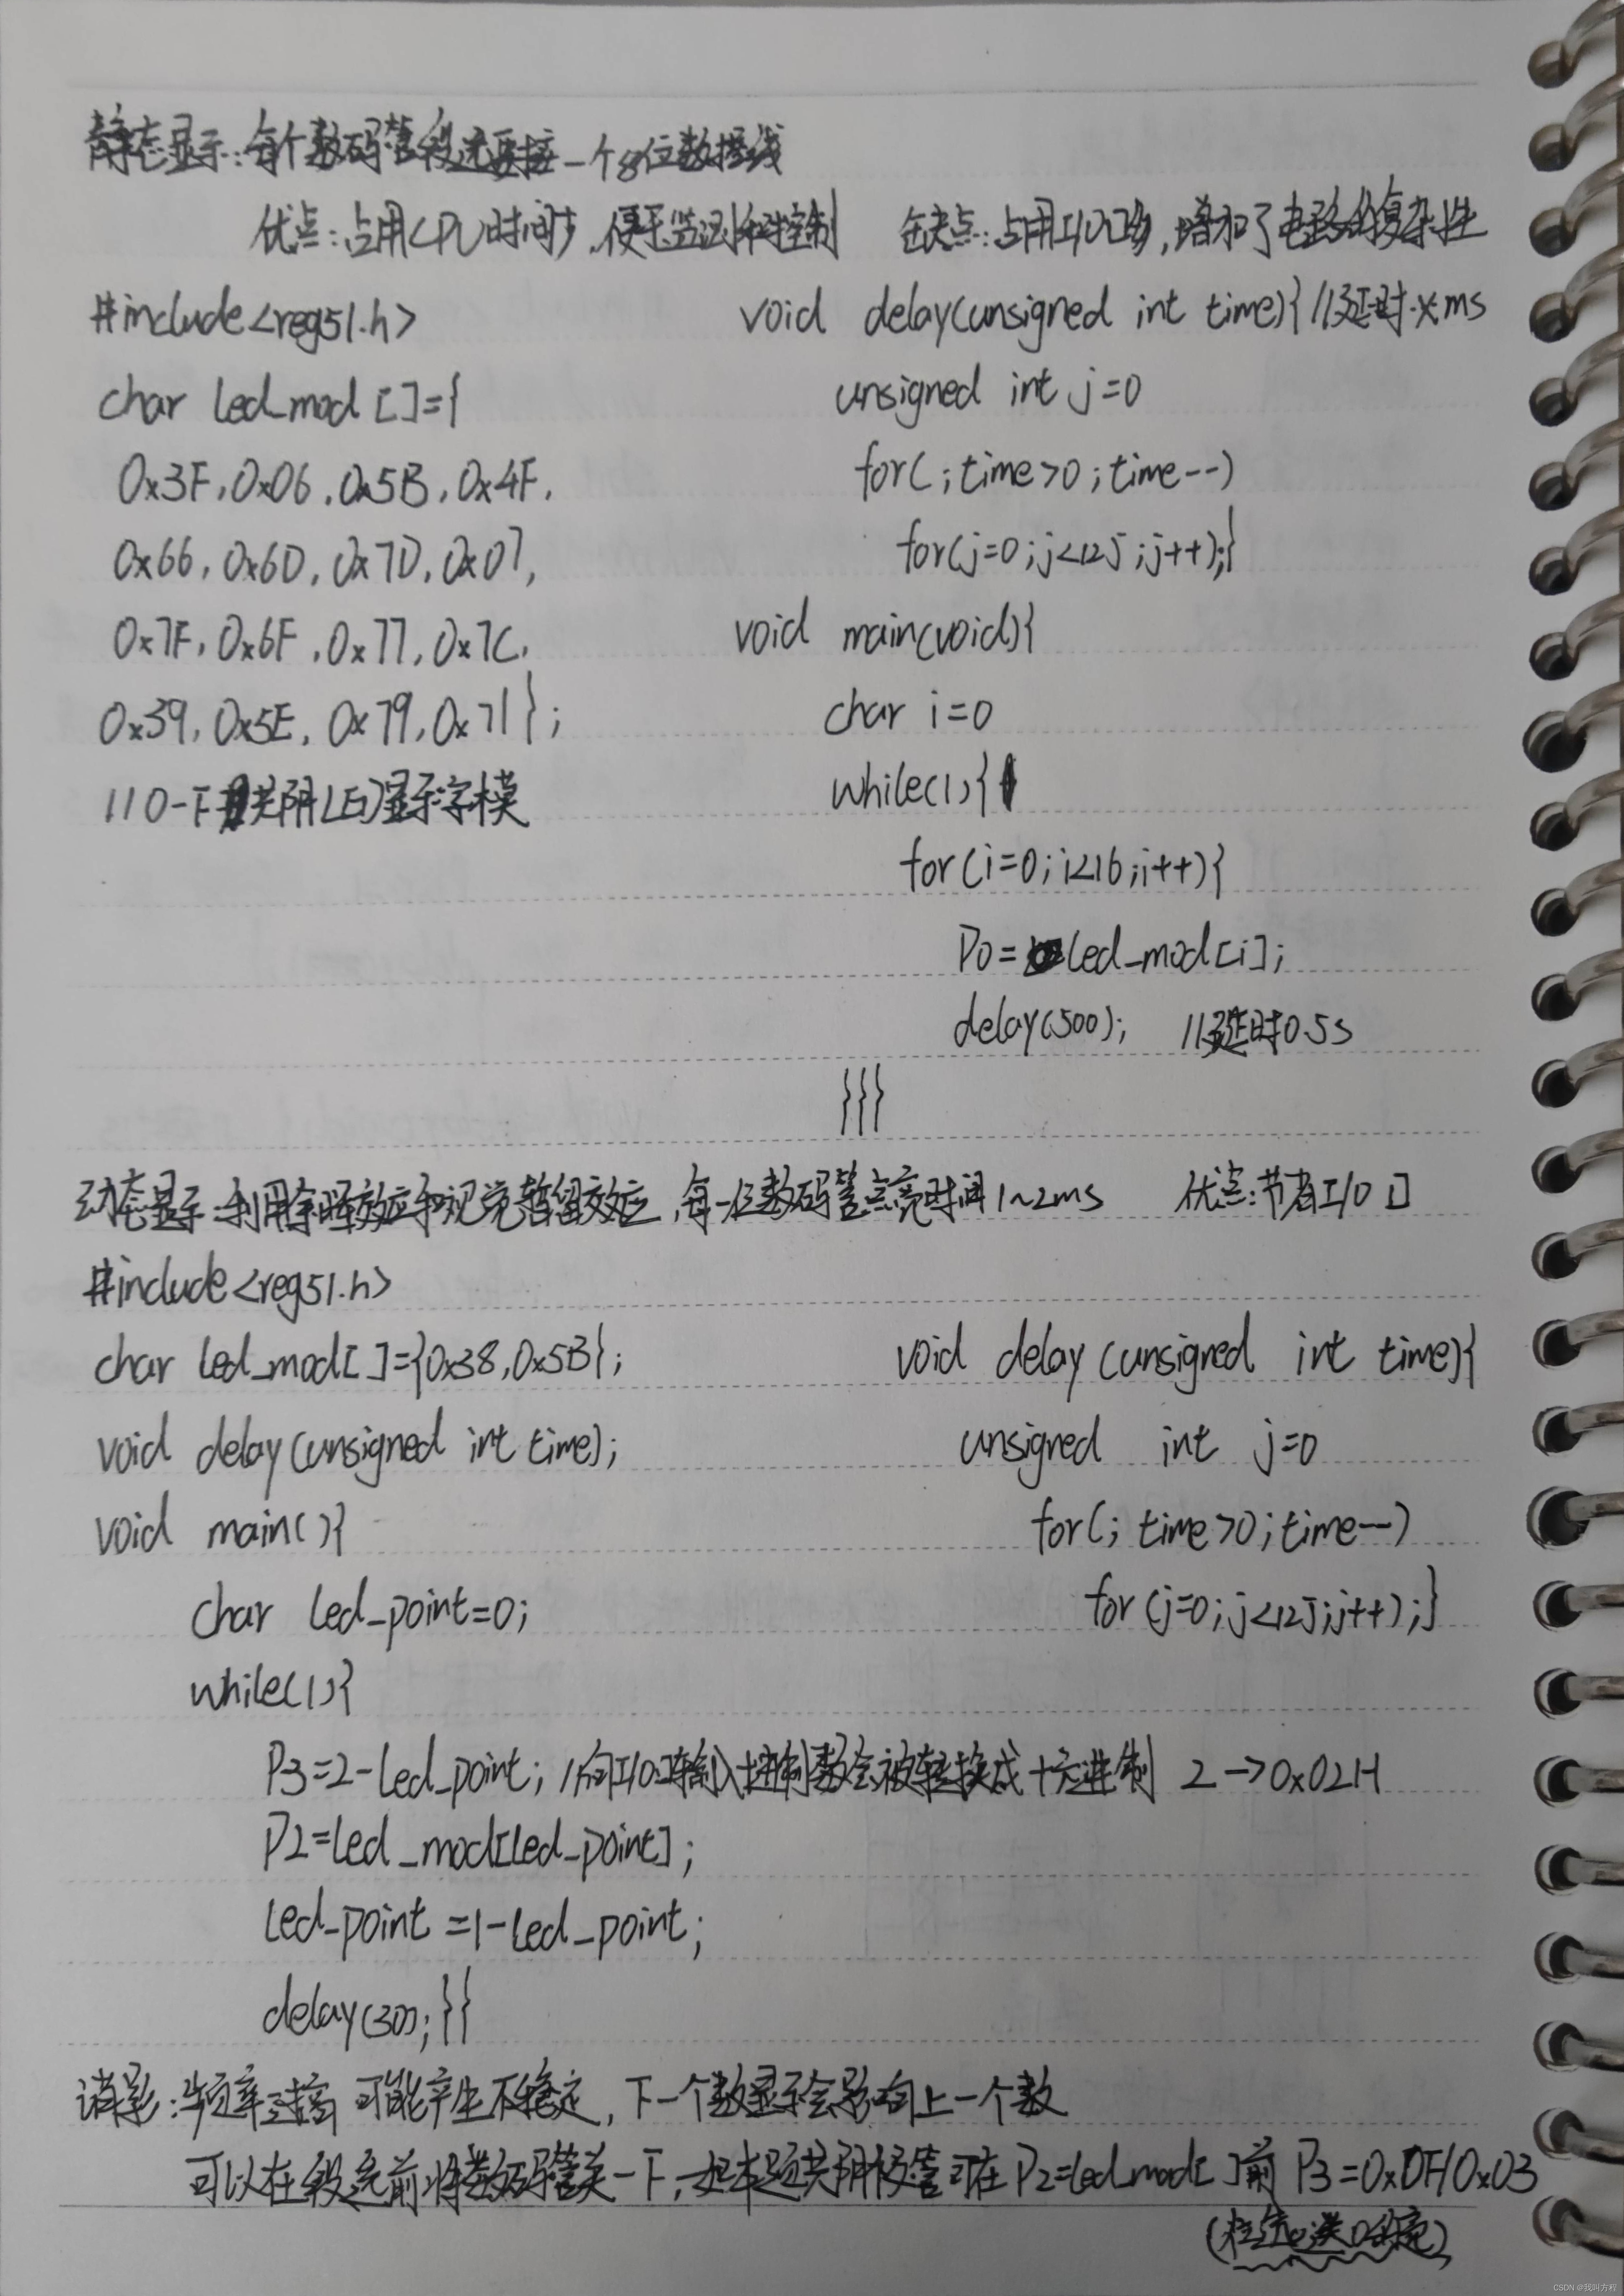 静态显示:每个数码管段选要接一个8位数据线
优点:占用CPU时间少,便于监测和控制 缺点:占用I/O口多,增加了电路的复杂性
#include<reg51.h>
char led_mod []={
0x3F,0x06,0x5B,0x4F,
0x66,0x6D,0x7D,0x07,
0x7F,0x6F,0x77,0x7C,
0x39,0x5E,0x79,0x71};
//0-F共阴LED显示字模
void delay(unsigned int time){ //延时xms
unsigned int j=0
for(;time>0;time--)
for(j=0;j<125;j++);}
void main(void){
char i=0
while(1){
for(i=0;i<16;i++){
P0=led_mod[i];
delay(500); //延时0.5s
}}}
动态显示:利用余晖效应和视觉暂留效应,每一位数码管点亮时间1~2ms 优点:节省I/O口
#include<reg51.h>
char led_mod[]={0x38,0x5B};
void delay(unsigned int time);
void main(){
char led_point=0;
while(1){
P3=2-led_point; //向I/O口输入十进制数会被转换成十六进制 2->0x02H
P2=led_mod[led_point];
led_point=1-led_point;
delay(30);}}
void delay(unsigned int time){
unsigned int j=0
for(; time>0;time--)
for(j=0;j<125;j++);}
消影:频率过高可能产生不稳定,下一个数显示会影响上一个数
可以在段选前将数码管关一下,如本题共阴极管可在P2=led_mod[]前 P3=0xDF/0x03
CSDN @我叫方程